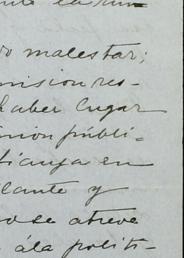 malestar;
mision res-
haber lugar
nion públi-
fianza en
lante y
se atreve
á la políti-